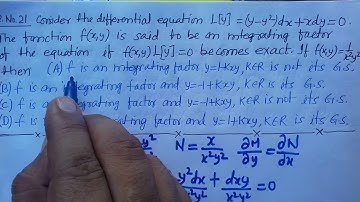 Q.No.21 Consider the differential equation L[y] = (y-y²)dx+xdy=0.
The function f(x,y) is said to be an integrating factor
of the equation if f(x,y) L[y]=0 becomes exact. If f(x,y)=1/x²y²
then (A) f is an integrating factor y=1+Kxy, KϵR is not its G.S.
(B) f is an integrating factor and y=-1+Kxy, KϵR is its G.S.
(C) f is integrating factor and y=-1+Kxy, KϵR is not its G.S.
(D) f is integrating factor and y=1+Kxy, KϵR is its G.S.
y² N= x/x²y² ∂M/∂y = ∂N/∂x
y²dx + dxy =0
x²y²